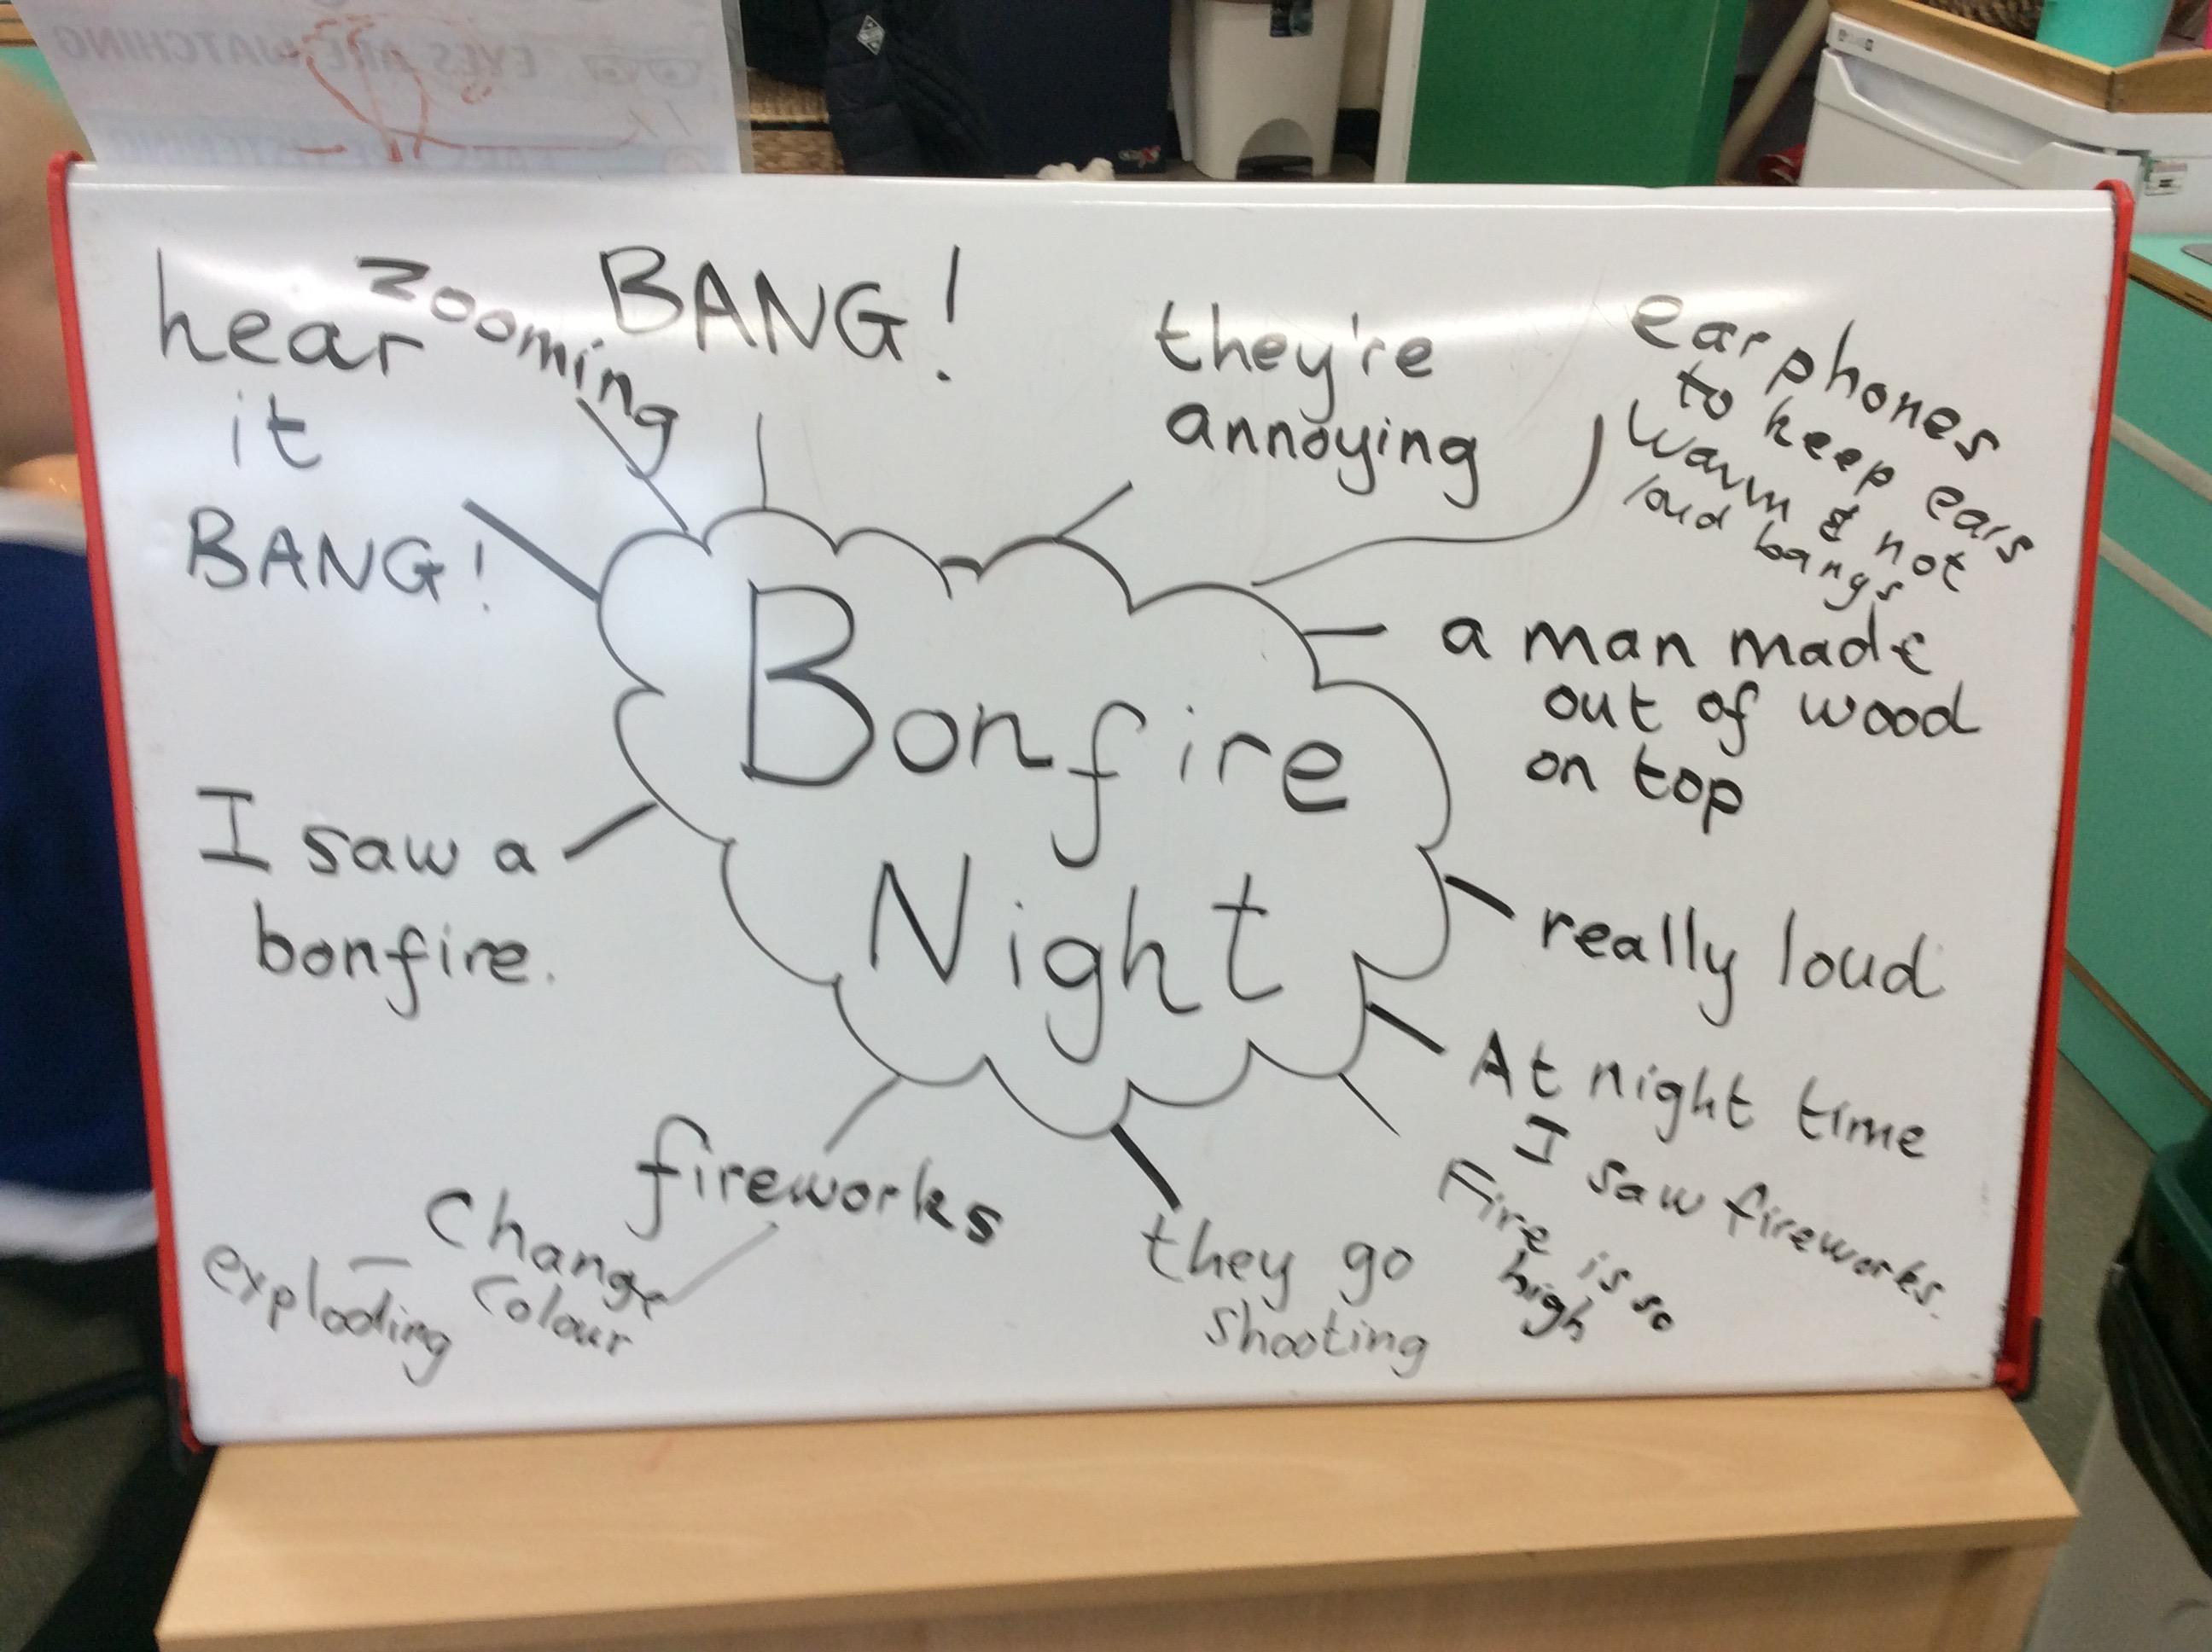 EYES ARE WATCHING
hear
it
BANG!
zooming
BANG!
they're
annoying
earphones
to keep ears
warm & not
loud bangs
Bonfire
Night
a man made
out of wood
on top
really loud
At night time
I saw fireworks.
Fire is so
high
they go
shooting
fireworks
Change
colour
– exploding
I saw a
bonfire.